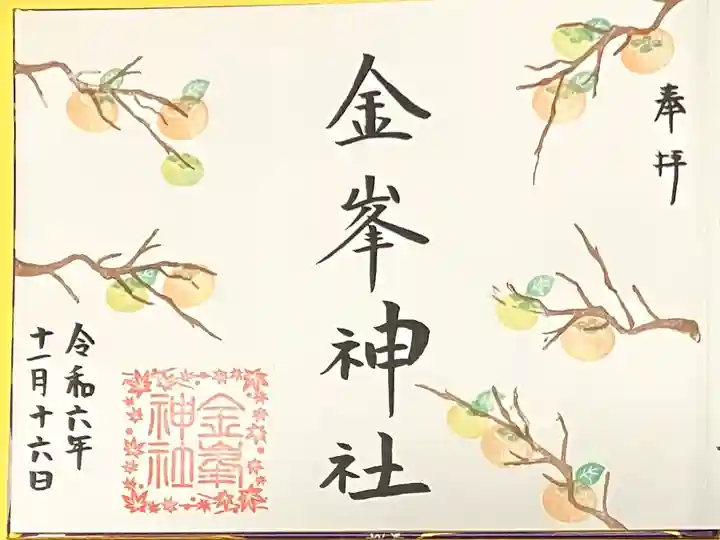 奉拝
金峯神社
令和六年
十一月十六日
金峯
神社